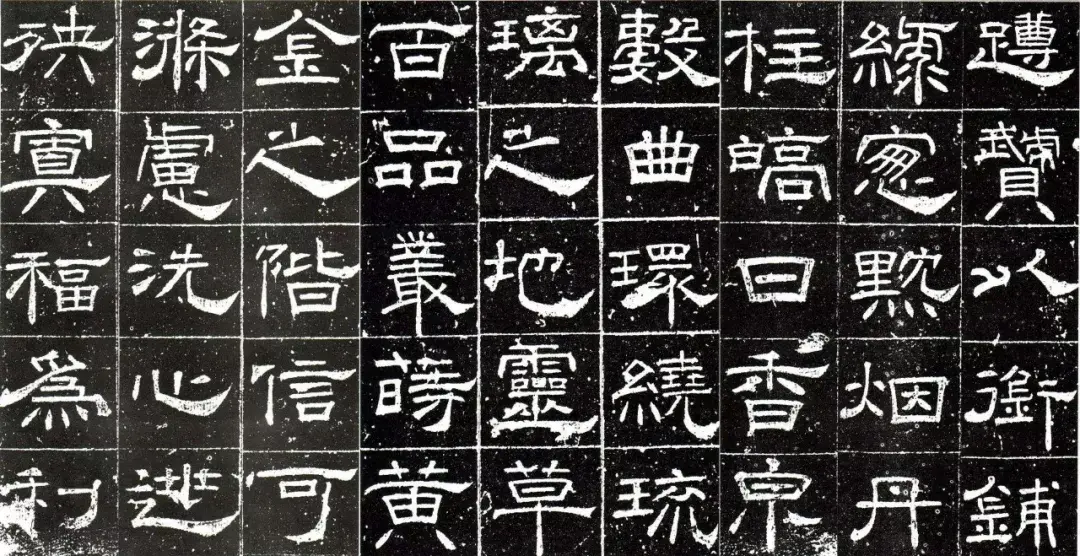 蹲贙以銜鋪
縹窓黕烟丹
柱皜日香泉
數曲環繞琉
璃之地靈草
百品叢蒔黃
金之階信可
滌慮洗心逃
殃寘福為利